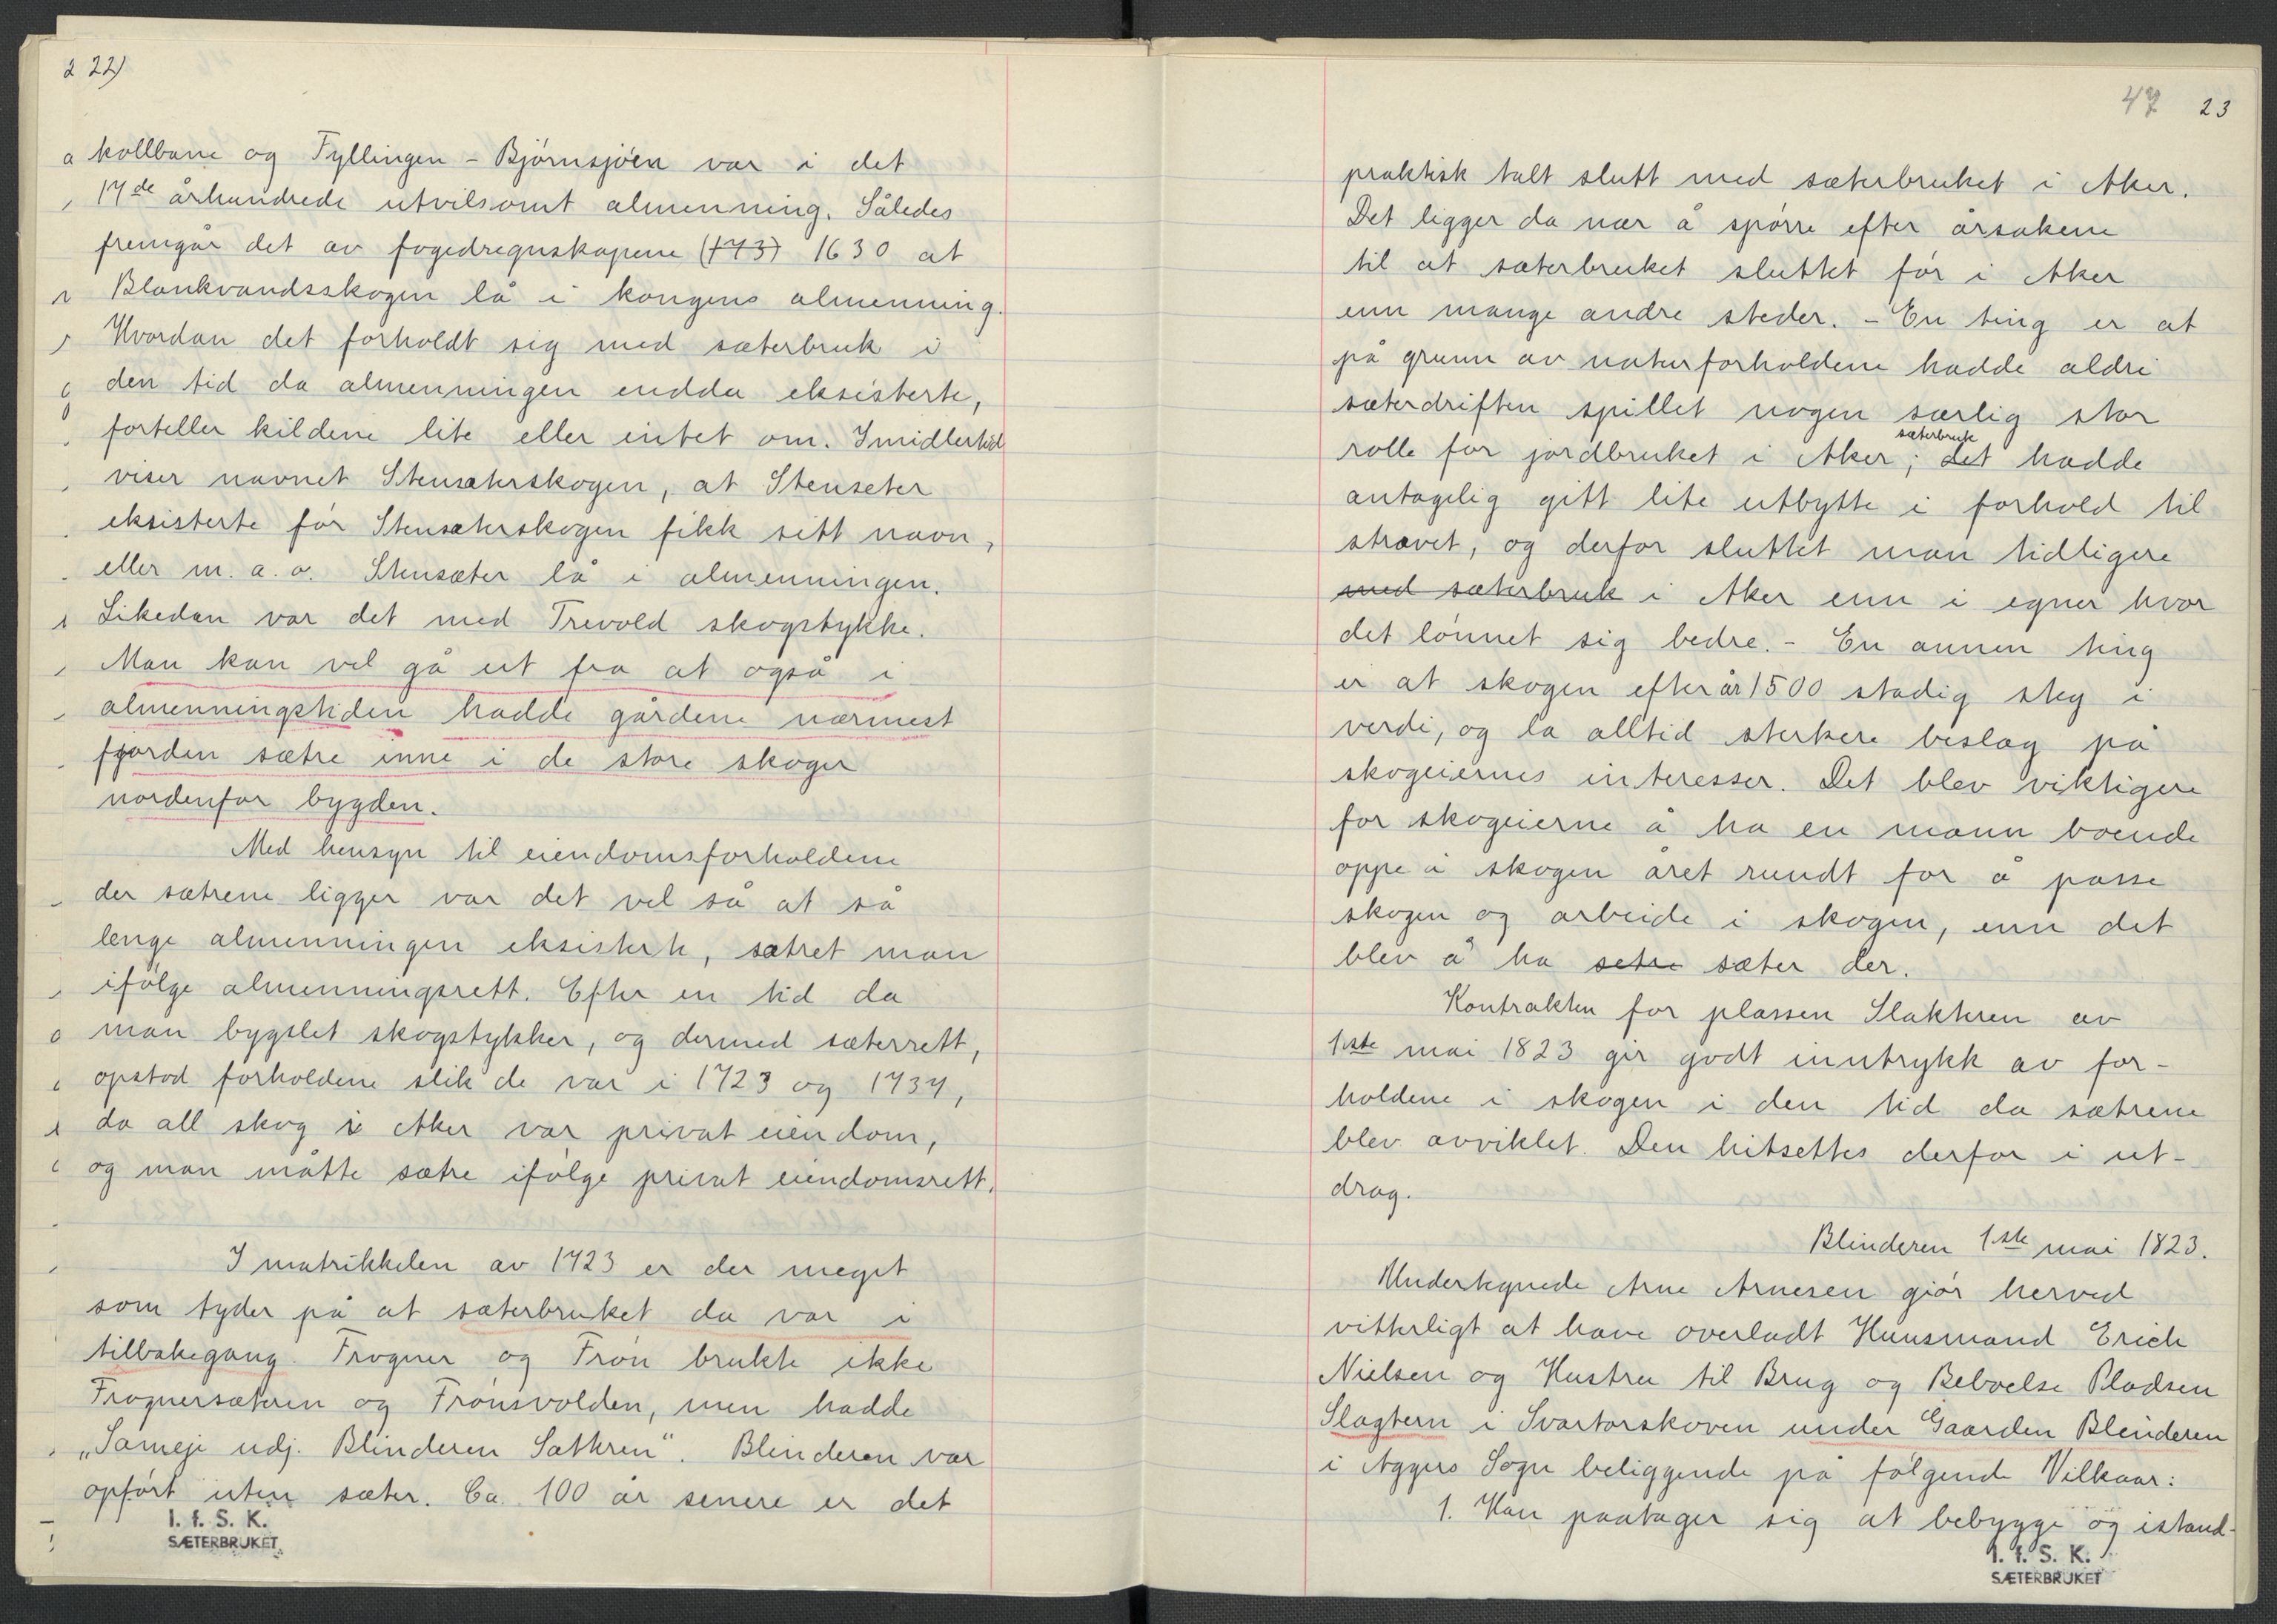 22)
kollbane og Tyllingen - Bjørnsjøen var i det
17de århundrede utvilsomt almenning. Således
fremgår det av fogedregnskapene (173) 1630 at
Blankvandsskogen lå i kongens almenning.
Hvordan det forholdt sig med sæterbruk i
den tid da almenningen endda eksisterte,
forteller kildene lite eller intet om. Imidlertid
viser navnet Stensæterskogen, at Stenseter
eksisterte før Stensæterskogen fikk sitt navn,
eller m. a. o. Stensæter lå i almenningen.
Likedan var det med Trevold skogstykke.
Man kan vel gå ut fra at også i
almenningstiden hadde gårdene nærmest
fjorden sætre inne i de store skoger
nordenfor bygden.
Med hensyn til eiendomsforholdene
der sætrene ligger var det vel så at så
lenge almenningen eksisterte, sætret man
ifølge almenningsrett. Efter en tid da
man bygslet skogstykker, og dermed sæterrett,
opstod forholdene slik de var i 1723 og 1737,
da all skog i Aker var privat eiendom,
og man måtte sætre ifølge privat eiendomsrett.
I matrikkelen av 1723 er der meget
som tyder på at sæterbruket da var i
tilbakegang. Frogner og Frøn brukte ikke
Frognersæteren og Frønsvolden, men hadde
„Sameje udj. Blinderen Sættren". Blinderen var
opført uten sæter. Ca. 100 år senere er det
I. f. S. K.
SÆTERBRUKET
47 23
praktisk talt slutt med sæterbruket i Aker.
Det ligger da nær å spørre efter årsakene
til at sæterbruket sluttet før i Aker
enn mange andre steder. - En ting er at
på grunn av naturforholdene hadde aldri
sæterdriften spillet nogen særlig stor
sæterbruk
rolle for jordbruket i Aker; det hadde
antagelig gitt lite utbytte i forhold til
strævet, og derfor sluttet man tidligere
med sæterbruk i Aker enn i egner hvor
det lønnet sig bedre. - En annen ting
er at skogen efter år 1500 stadig steg i
verdi, og la alltid sterkere beslag på
skogeiernes interesser. Det blev viktigere
for skogeierne å ha en mann boende
oppe i skogen året rundt for å passe
skogen og arbeide i skogen, enn det
blev å ha setre sæter der.
Kontrakten for plassen Slakteren av
1ste mai 1823 gir godt inntrykk av for-
holdene i skogen i den tid da sætrene
blev avviklet. Den hitsettes derfor i ut-
drag.
Blinderen 1ste mai 1823.
Undertegnede Arne Arnesen giør herved
vitterligt at have overladt Huusmand Erich
Nielsen og Hustru til Brug og Beboelse Pladsen
Slagtern i Svartorskoven under Gaarden Blinderen
i Aggers Sogn beliggende på følgende Vilkaar:
1. Han paatager sig at bebygge og istand-
I. f. S. K.
SÆTERBRUKET